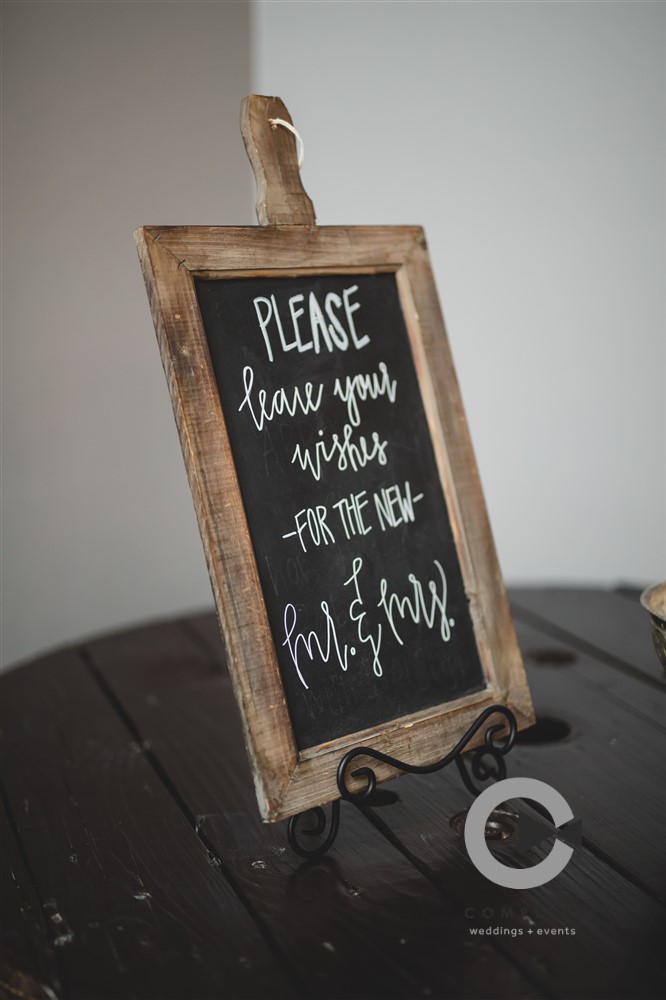 PLEASE
leave your
wishes
-FOR THE NEW-
mr. & mrs.
C
weddings + events